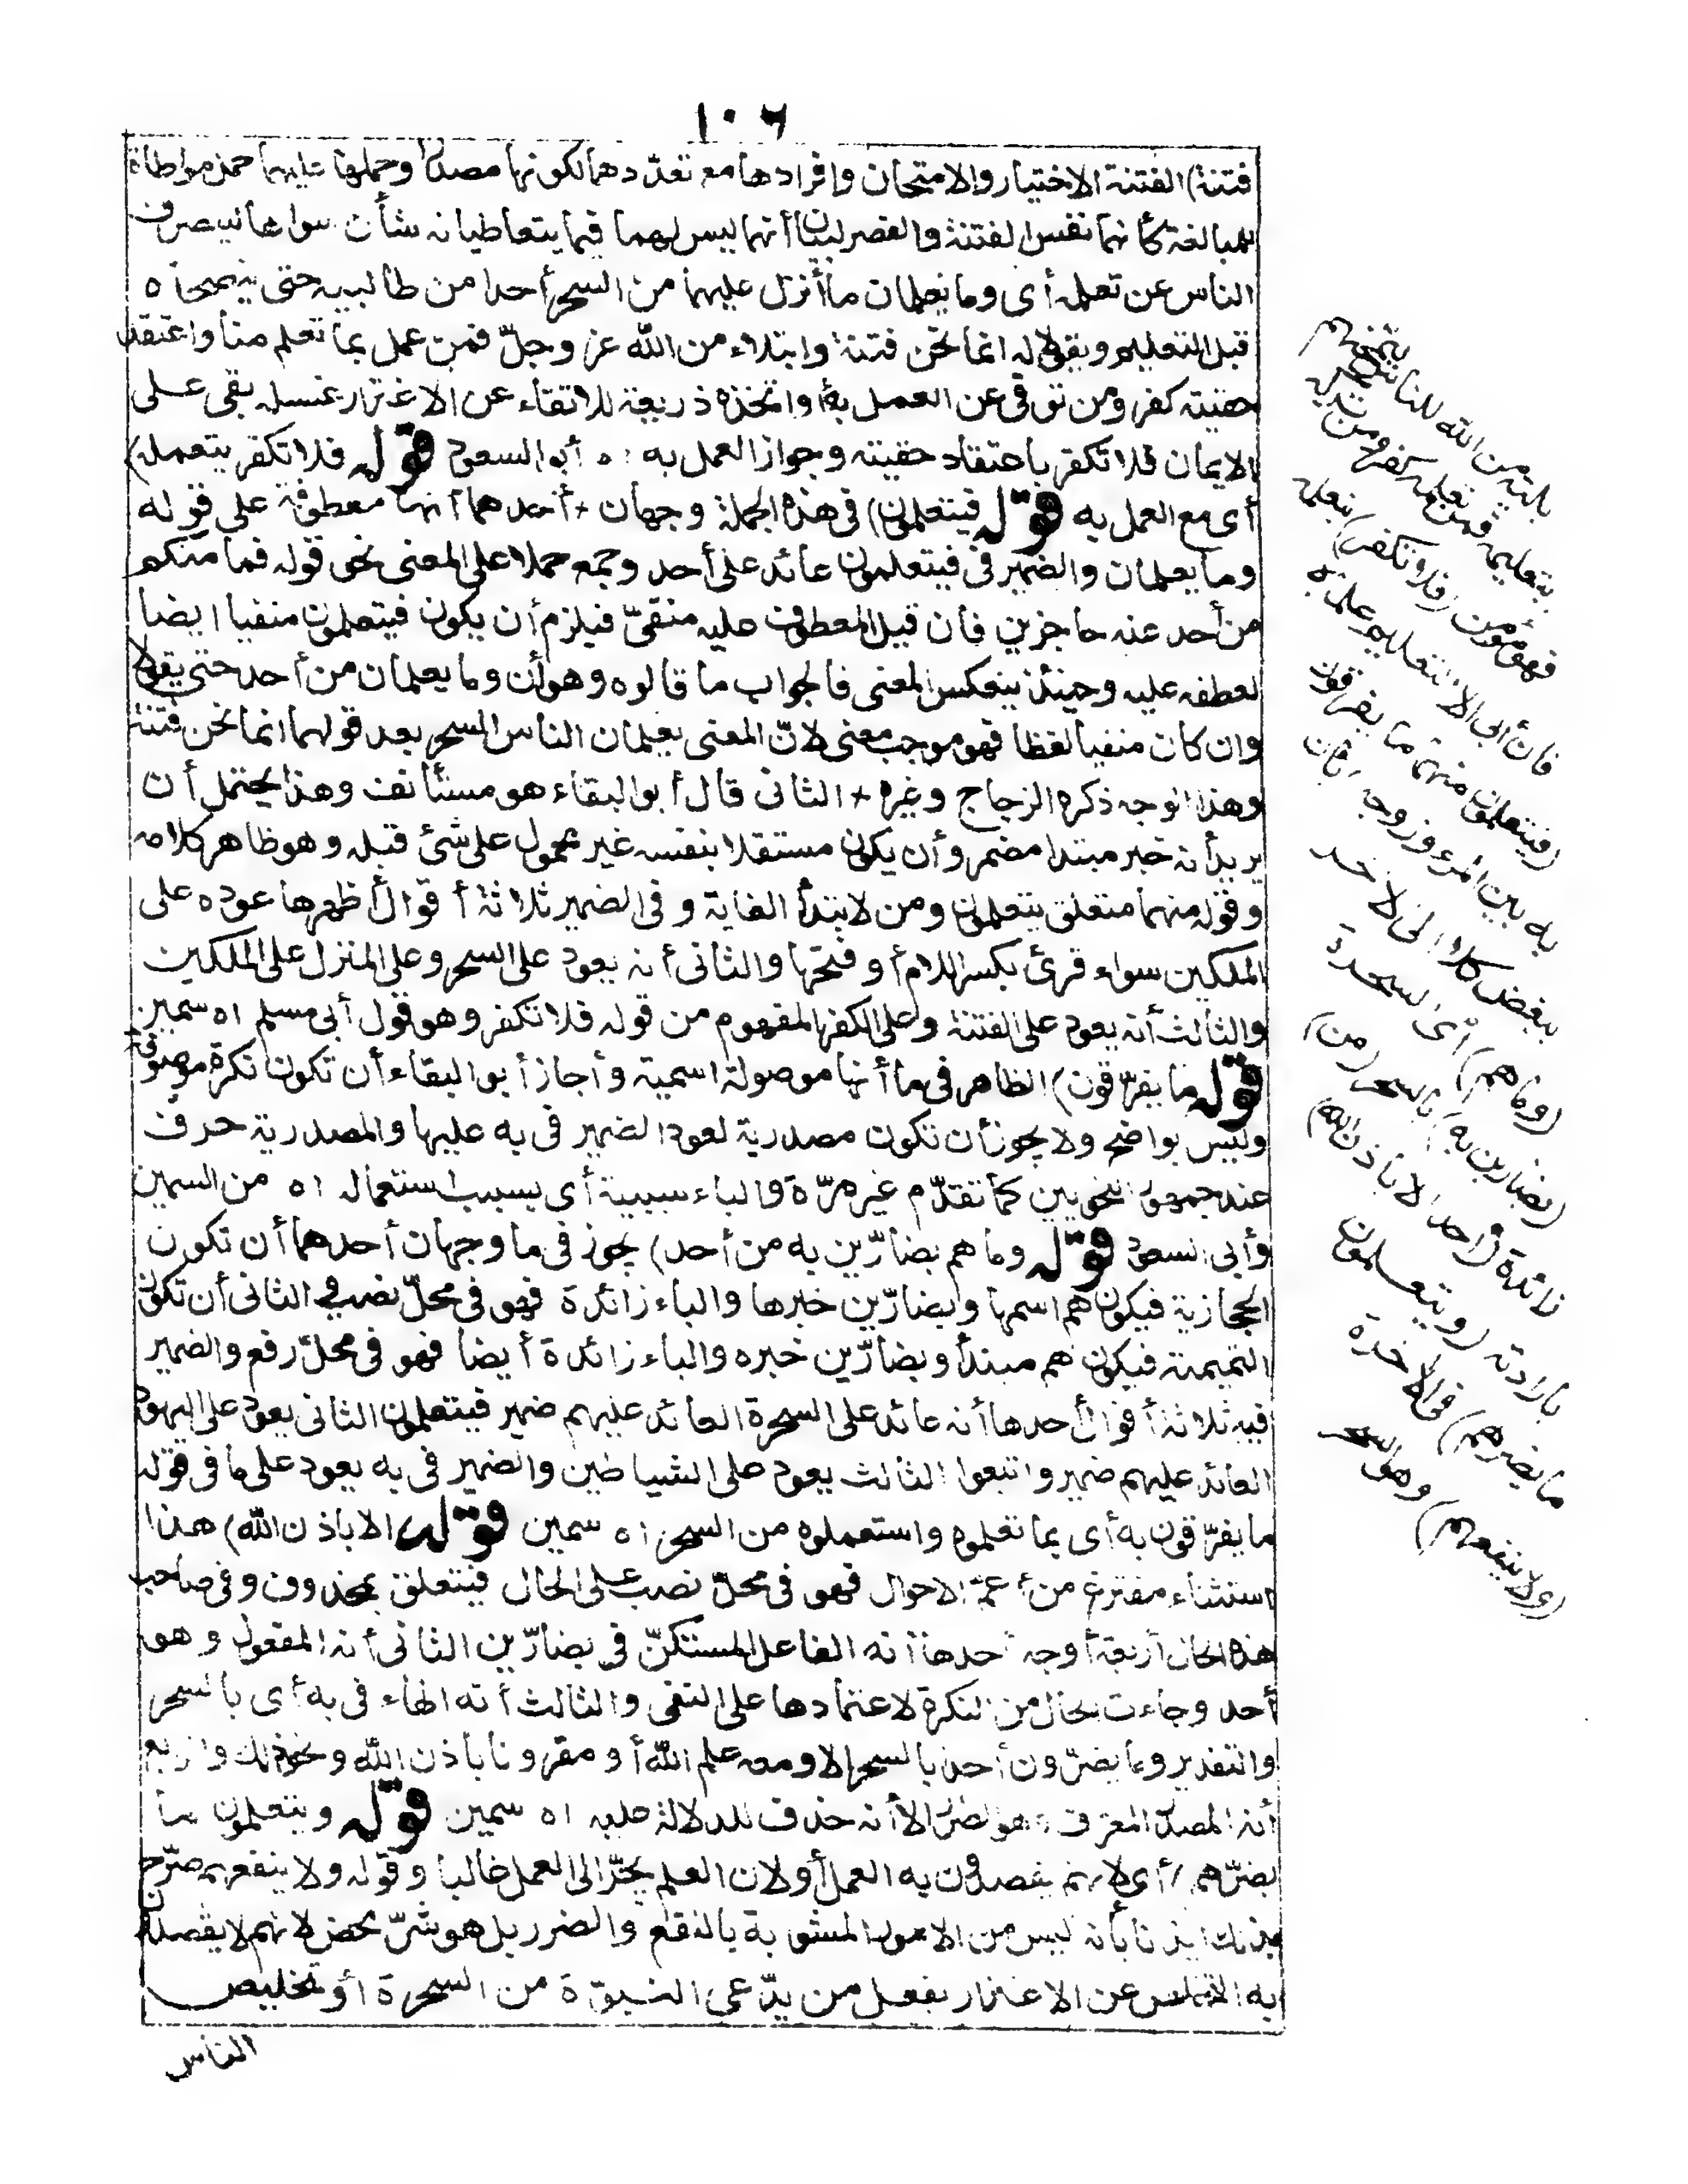 ١٠٦
فتنة) الفتنة الاختبار والامتحان وافرادها مع تعدّدهما لكونها مصدرا وحملها عليهما حمل مواطاة
للمبالغة كأنهما نفس الفتنة والقصر لبيان أنهما ليس لهما فيما يتعاطيانه شأن سواها لينصرف
الناس عن تعلمه أى وما يعلمان ما أنزل عليهما من السحر أحدا من طالبيه حتى ينصحاه
قبل التعليم ويقولا له انما نحن فتنة وابتلاء من الله عز وجلّ فمن عمل بما تعلم منا واعتقد
حقيته كفر ومن توقى عن العمل به أو اتخذه ذريعة للاتقاء عن الاغترار بمثله بقى على
الايمان فلا تكفر باعتقاد حقيته وجواز العمل به اه أبو السعود قوله فلا تكفر بتعمله)
أى مع العمل به قوله فيتعلمون) فى هذه الجملة وجهان * أحدهما أنها معطوفة على قوله
وما يعلمان والضمير فى فيتعلمون عائد على أحد وجمع حملا على المعنى نحو قوله فما منكم
من أحد عنه حاجزين فان قيل المعطوف عليه منفىّ فيلزم أن يكون فيتعلمون منفيا ايضا
لعطفه عليه وحينئذ ينعكس المعنى فالجواب ما قالوه وهو أن وما يعلمان من أحد حتى يقولا
وان كان منفيا لفظا فهو موجب معنى لانّ المعنى يعلمان الناس السحر بعد قولهما انما نحن فتنة
وهذا الوجه ذكره الزجاج وغيره * الثانى قال أبو البقاء هو مستأنف وهذا يحتمل أن
يريد أنه خبر مبتدا مضمر وأن يكون مستقلا بنفسه غير محمول على شئ قبله وهو ظاهر كلامه
وقوله منهما متعلق بيتعلمون ومن لابتدأ الغاية وفى الضمير ثلاثة أقوال أظهرها عوده على
الملكين سواء قرئ بكسر اللام أو فتحها والثانى أنه يعود على السحر وعلى المنزل على الملكين
والثالث أنه يعود على الفتنة وعلى الكفر المفهوم من قوله فلا تكفر وهو قول أبى مسلم اه سمين
قوله ما يفرّقون) الظاهر فى ما أنها موصولة اسمية وأجاز أبو البقاء أن تكون نكرة موصوفة
وليس بواضح ولا يجوز أن تكون مصدرية لعود الضمير فى به عليها والمصدرية حرف
عند جمهور النحويين كما تقدّم غير مرّة والباء سببية أى بسبب استعماله اه من السمين
وأبى السعود قوله وما هم بضارّين به من أحد) يجوز فى ما وجهان أحدهما أن تكون
الحجازية فيكون هم اسمها وبضارّين خبرها والباء زائدة فهو فى محلّ نصب والثانى أن تكون
التميمية فيكون هم مبتدأ وبضارّين خبره والباء زائدة أيضا فهو فى محلّ رفع والضمير
فيه ثلاثة أقوال أحدها أنه عائد على السحرة العائد عليهم ضمير فيتعلمون الثانى يعود على اليهود
العائد عليهم ضمير واتبعوا الثالث يعود على الشياطين والضمير فى به يعود على ما فى قوله
ما يفرّقون به أى بما تعلموه واستعملوه من السحر اه سمين قوله الا باذن الله) هذا
استثناء مفرّغ من أعمّ الاحوال فهو فى محلّ نصب على الحال فيتعلق بمحذوف وفى صاحب
هذه الحال أربعة أوجه أحدها أنه الفاعل المستكنّ فى بضارّين الثانى أنه المفعول وهو
أحد وجاءت الحال من النكرة لاعتمادها على النفى والثالث أنه الهاء فى به أى بالسحر
والتقدير وما يضرّون أحدا بالسحر الا ومعه علم الله أو مقرونا باذن الله ونحو ذلك والرابع
أنه المصدر المعرف وهو الضرر الا أنه حذف للدلالة عليه اه سمين قوله ويتعلمون ما
يضرّهم) أى لانهم يقصدون به العمل أو لان العلم يجرّ الى العمل غالبا وقوله ولا ينفعهم صرّح
بذلك ايذانا بأنه ليس من الامور المشوبة بالنفع والضرر بل هو شرّ محض لانهم لا يقصدون
به التخلص عن الاغترار بفعل من يدّعى النبوّة من السحرة أو تخليص
الناس
بلية من الله للناس ليمتحنهم
بتعليمه فمن تعلمه كفر ومن تركه
فهو مؤمن (فلا تكفر) بتعلمه
فان أبى الا التعليم علماه
(فيتعلمون منهما ما يفرقون
به بين المرء وزوجه) بان
يبغض كلا الى الاخر
(وما هم) أى السحرة
(بضارين به) بالسحر (من)
زائدة (أحد الا باذن الله)
بارادته (ويتعلمون
ما يضرهم) فى الاخرة
(ولا ينفعهم) وهو السحر